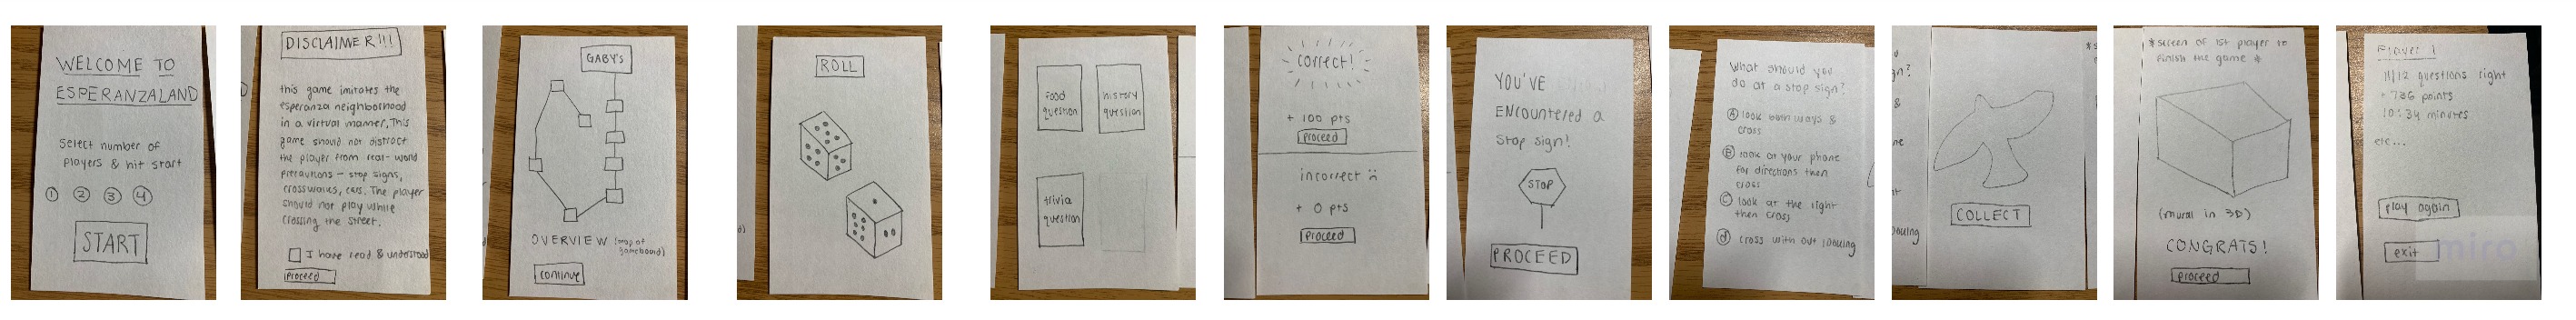 WELCOME TO
ESPERANZALAND
select number of
players & hit start
1 2 3 4
START
DISCLAIMER!!!
this game imitates the
esperanza neighborhood
in a virtual manner. This
game should not distract
the player from real-world
precautions – stop signs,
crosswalks, cars. The player
should not play while
crossing the street.
I have read & understood
proceed
GABY'S
OVERVIEW (map of
gameboard)
continue
ROLL
food
question
history
question
trivia
question
correct!
+ 100 pts
proceed
incorrect :(
+ 0 pts
proceed
YOU'VE
ENCOUNTERED a
Stop sign!
STOP
PROCEED
What should you
do at a stop sign?
A look both ways &
cross
B look at your phone
for directions then
cross
C look at the right
then cross
d cross with out looking
COLLECT
*screen of 1st player to
finish the game *
(mural in 3D)
CONGRATS!
proceed
Player 1
11/12 questions right
+ 736 points
10:34 minutes
etc...
play again
exit
miro